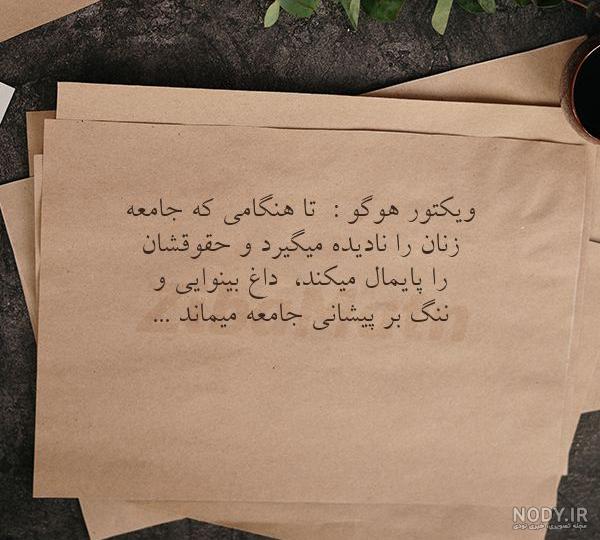 ویکتور هوگو : تا هنگامی که جامعه
زنان را نادیده میگیرد و حقوقشان
را پایمال میکند، داغ بینوایی و
ننگ بر پیشانی جامعه میماند ...
NODY.IR
مجله تصویری، خبری نودی